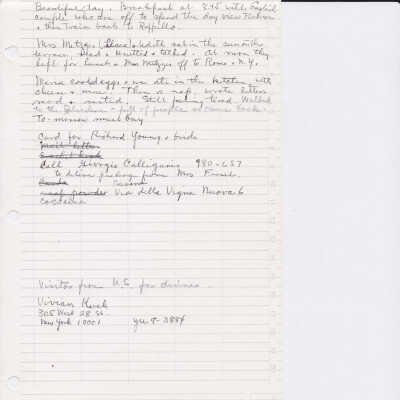 Beautiful day. Breakfast at 8:45 with English
couple who are off to spend the day
+ then train back to
Mrs Metzger, + Edith sat in the sun on the
terrace. Read + knitted + talked. At noon they
left for lunch + Mrs Metzger off to Rome + N.Y.
Maria cooked eggs + we ate in the kitchen, with
cheese + wine. Then a nap, wrote letters
read + rested. Still feeling tired. Walked
to the full of people + came back.
To-morrow must buy
Card for Richard Young + bride
Mail letters
Call Giorgio Calligaris 980-657
to deliver package from Mrs
Via della Vigna Nuova 6
Visitor from U.S. for dinner.
Vivian
305 West 28 St.
New York 10001 yu 9-3884